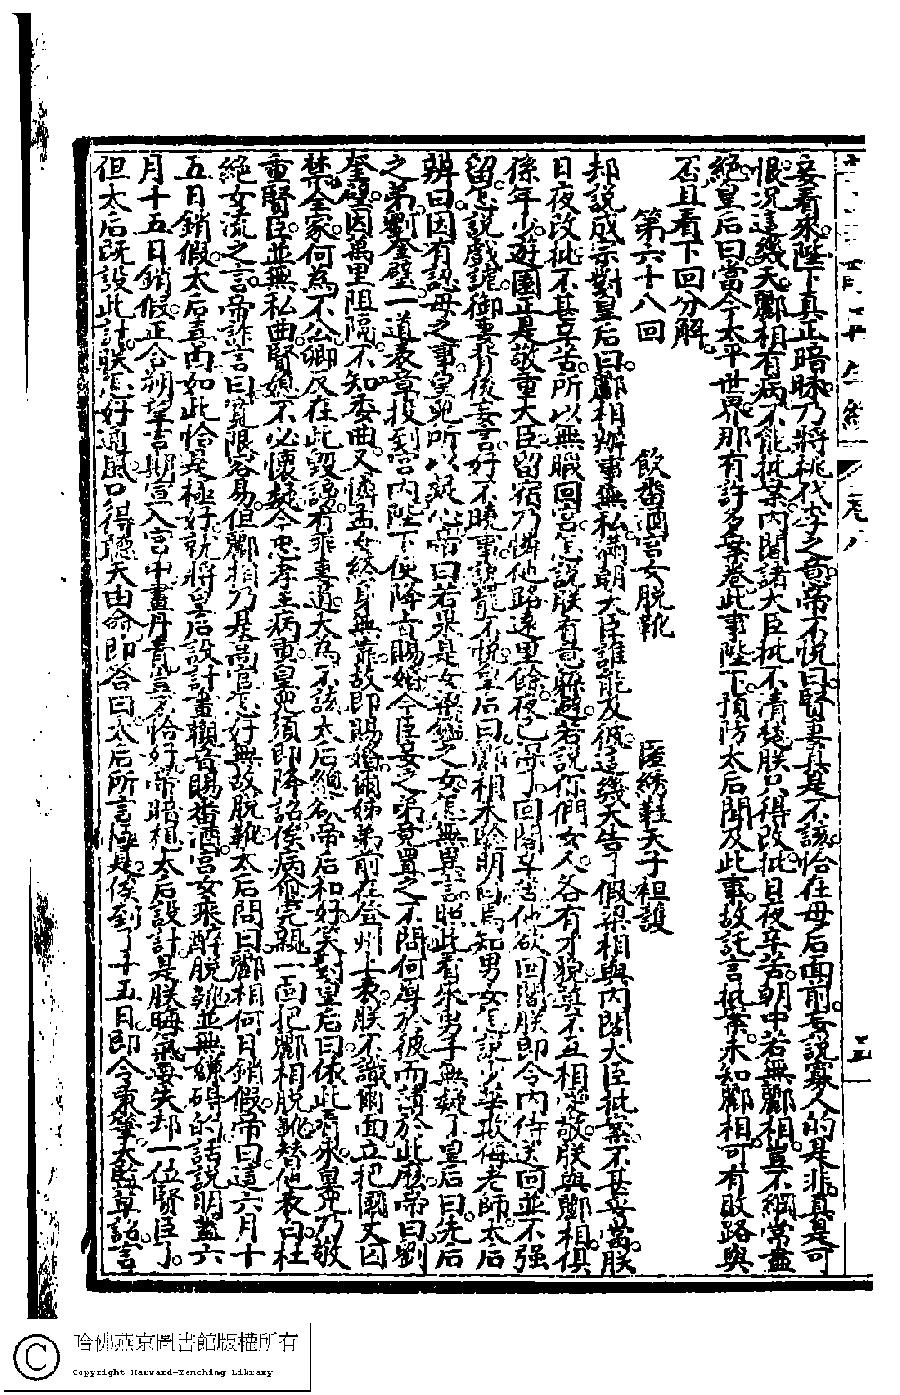 妾看來陛下真正暗昧乃將桃代李之意帝不悅曰賢妻真是不該恰在母后面前妄說寡人的是非真是可
恨况這幾天酈相有病不能批案内閣諸大臣批不清楚朕只得改批日夜辛苦朝中若無酈相豈不綱常盡
絕皇后曰當今太平世界那有許多案卷此事陛下預防太后聞及此事故託言批案未知酈相可有敗路與
否且看下回分解
第六十八回 飲番酒宮女脫靴 匿綉鞋天子袒護
却說成宗對皇后曰酈相辦事無私滿朝大臣誰能及彼這幾天告了假梁相與内閣大臣批案不甚妥當朕
日夜改批不甚辛苦所以無職回宮怎說朕有意躲避若說你們女人各有才貌豈不互相愛敬朕與酈相俱
係年少遊園正是敬重大臣留宿乃憐他路遠里餘夜已深了回閣辛苦他欲回閣朕即令内侍送回並不强
留怎說戲謔御妻背後妄言好不曉事說罷不悅皇后曰酈相未驗明白焉知男女怎說少年欺侮老師太后
辨曰因有認母之事皇兒所以疑心帝曰若果是女梁鑑之女怎無異言照此看來男子無疑了皇后曰先后
之弟劉奎璧一道表章投到宮内陛下便降旨賜婚今臣妾之弟竟置之不問何厚於彼而薄於此麽帝曰劉
奎璧因萬里阻隔不知委曲又憐孟女終身無靠故即賜婚爾姊弟前在登州上表朕不識爾面立把國丈囚
禁全家何為不公卿反在此毀謗有乖妻道大為不該太后總為帝后和好笑對皇后曰依此看來皇兒乃敬
重賢臣並無私曲賢媳不必懷疑今忠孝王病重皇兒須即降詔俟病愈完親一面把酈相脫靴替他表白杜
絕女流之言帝詐言曰寬限容易但酈相乃是高官怎好無故脫靴太后問曰酈相何日銷假帝曰這六月十
五日銷假太后喜曰如此恰是極好就將皇后設計畫觀音賜番酒宮女乘醉脫靴並無嫌碍的話說明蓋六
月十五日銷假正合朔望吉期宣入宮中畫丹青豈不恰好帝暗想太后設計是朕晦氣要失却一位賢臣了
但太后既設此計朕怎好通風只得聽天由命即答曰太后所言極是俟到了十五日即令秉筆太監草詔言
卷八
五
哈佛燕京圖書館版權所有
Copyright Harvard-Yenching Library